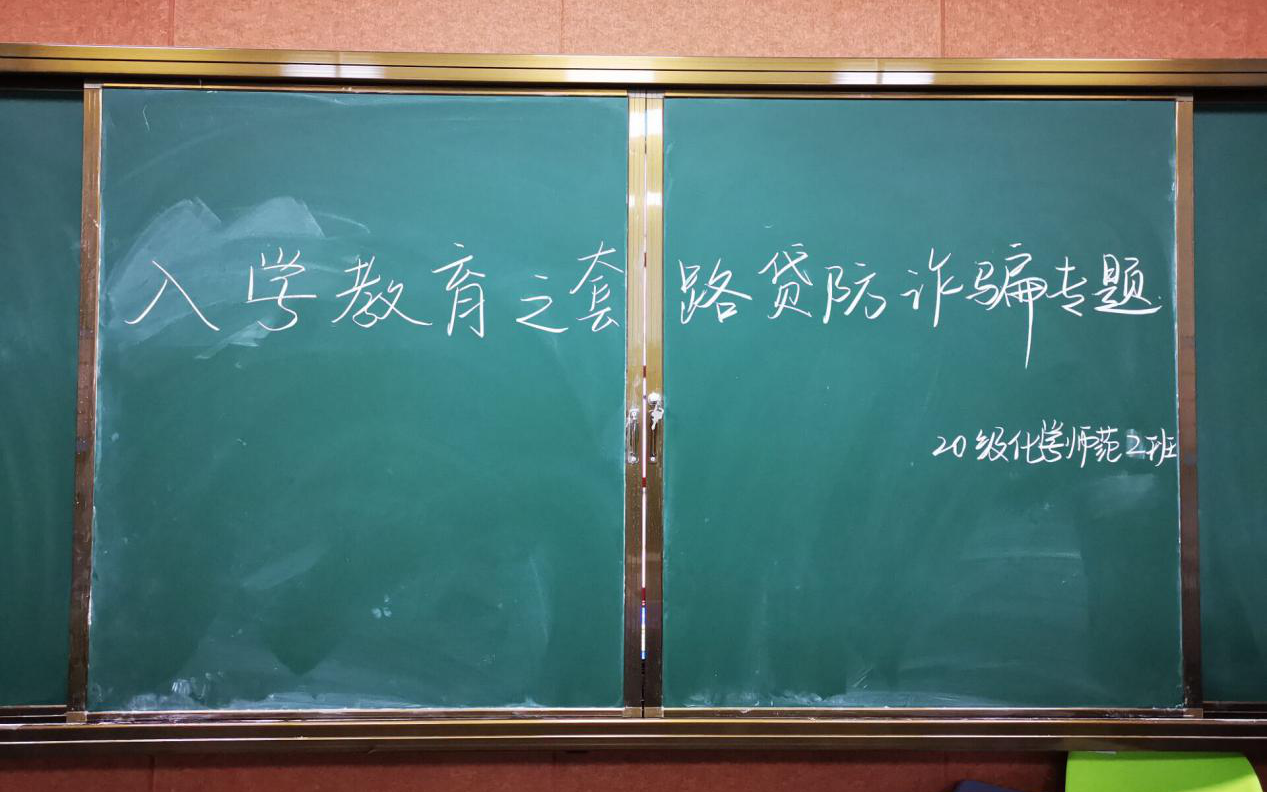 入学教育之套路贷防诈骗专题
20级化学师范2班